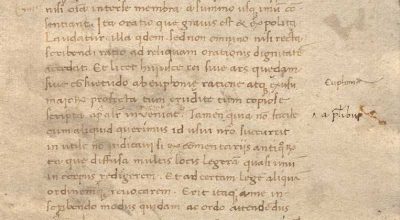 nisi oīa inter se membra a summo usq; imū co
sentiant. Ita oratio que gravis est & expolita
Laudatur illa qdem sed non omnino nisi recta
scribendi ratio ad reliquam orationis dignitatē
accedit. Et licet hujusce rei sive ars quedam
sive cōsuetudo ab euphonie ratione atq; usu
majorū profecta tum erudite tum copiose
scripta apud inveniat. Tamen qua nō facile
cum aliquid querimus id usui nr̄o succurrit
inutile nō judicavi si ex comentariis antiquorū
ea que diffusa multis locis legerā quasi in unū
in corpus redigerem. Et ad certam lege aliquā
ordinemq; revocarem. Erit itaq; a me in
scribendo modus quidam ac ordo attendēdus
Euphonia
a plibus